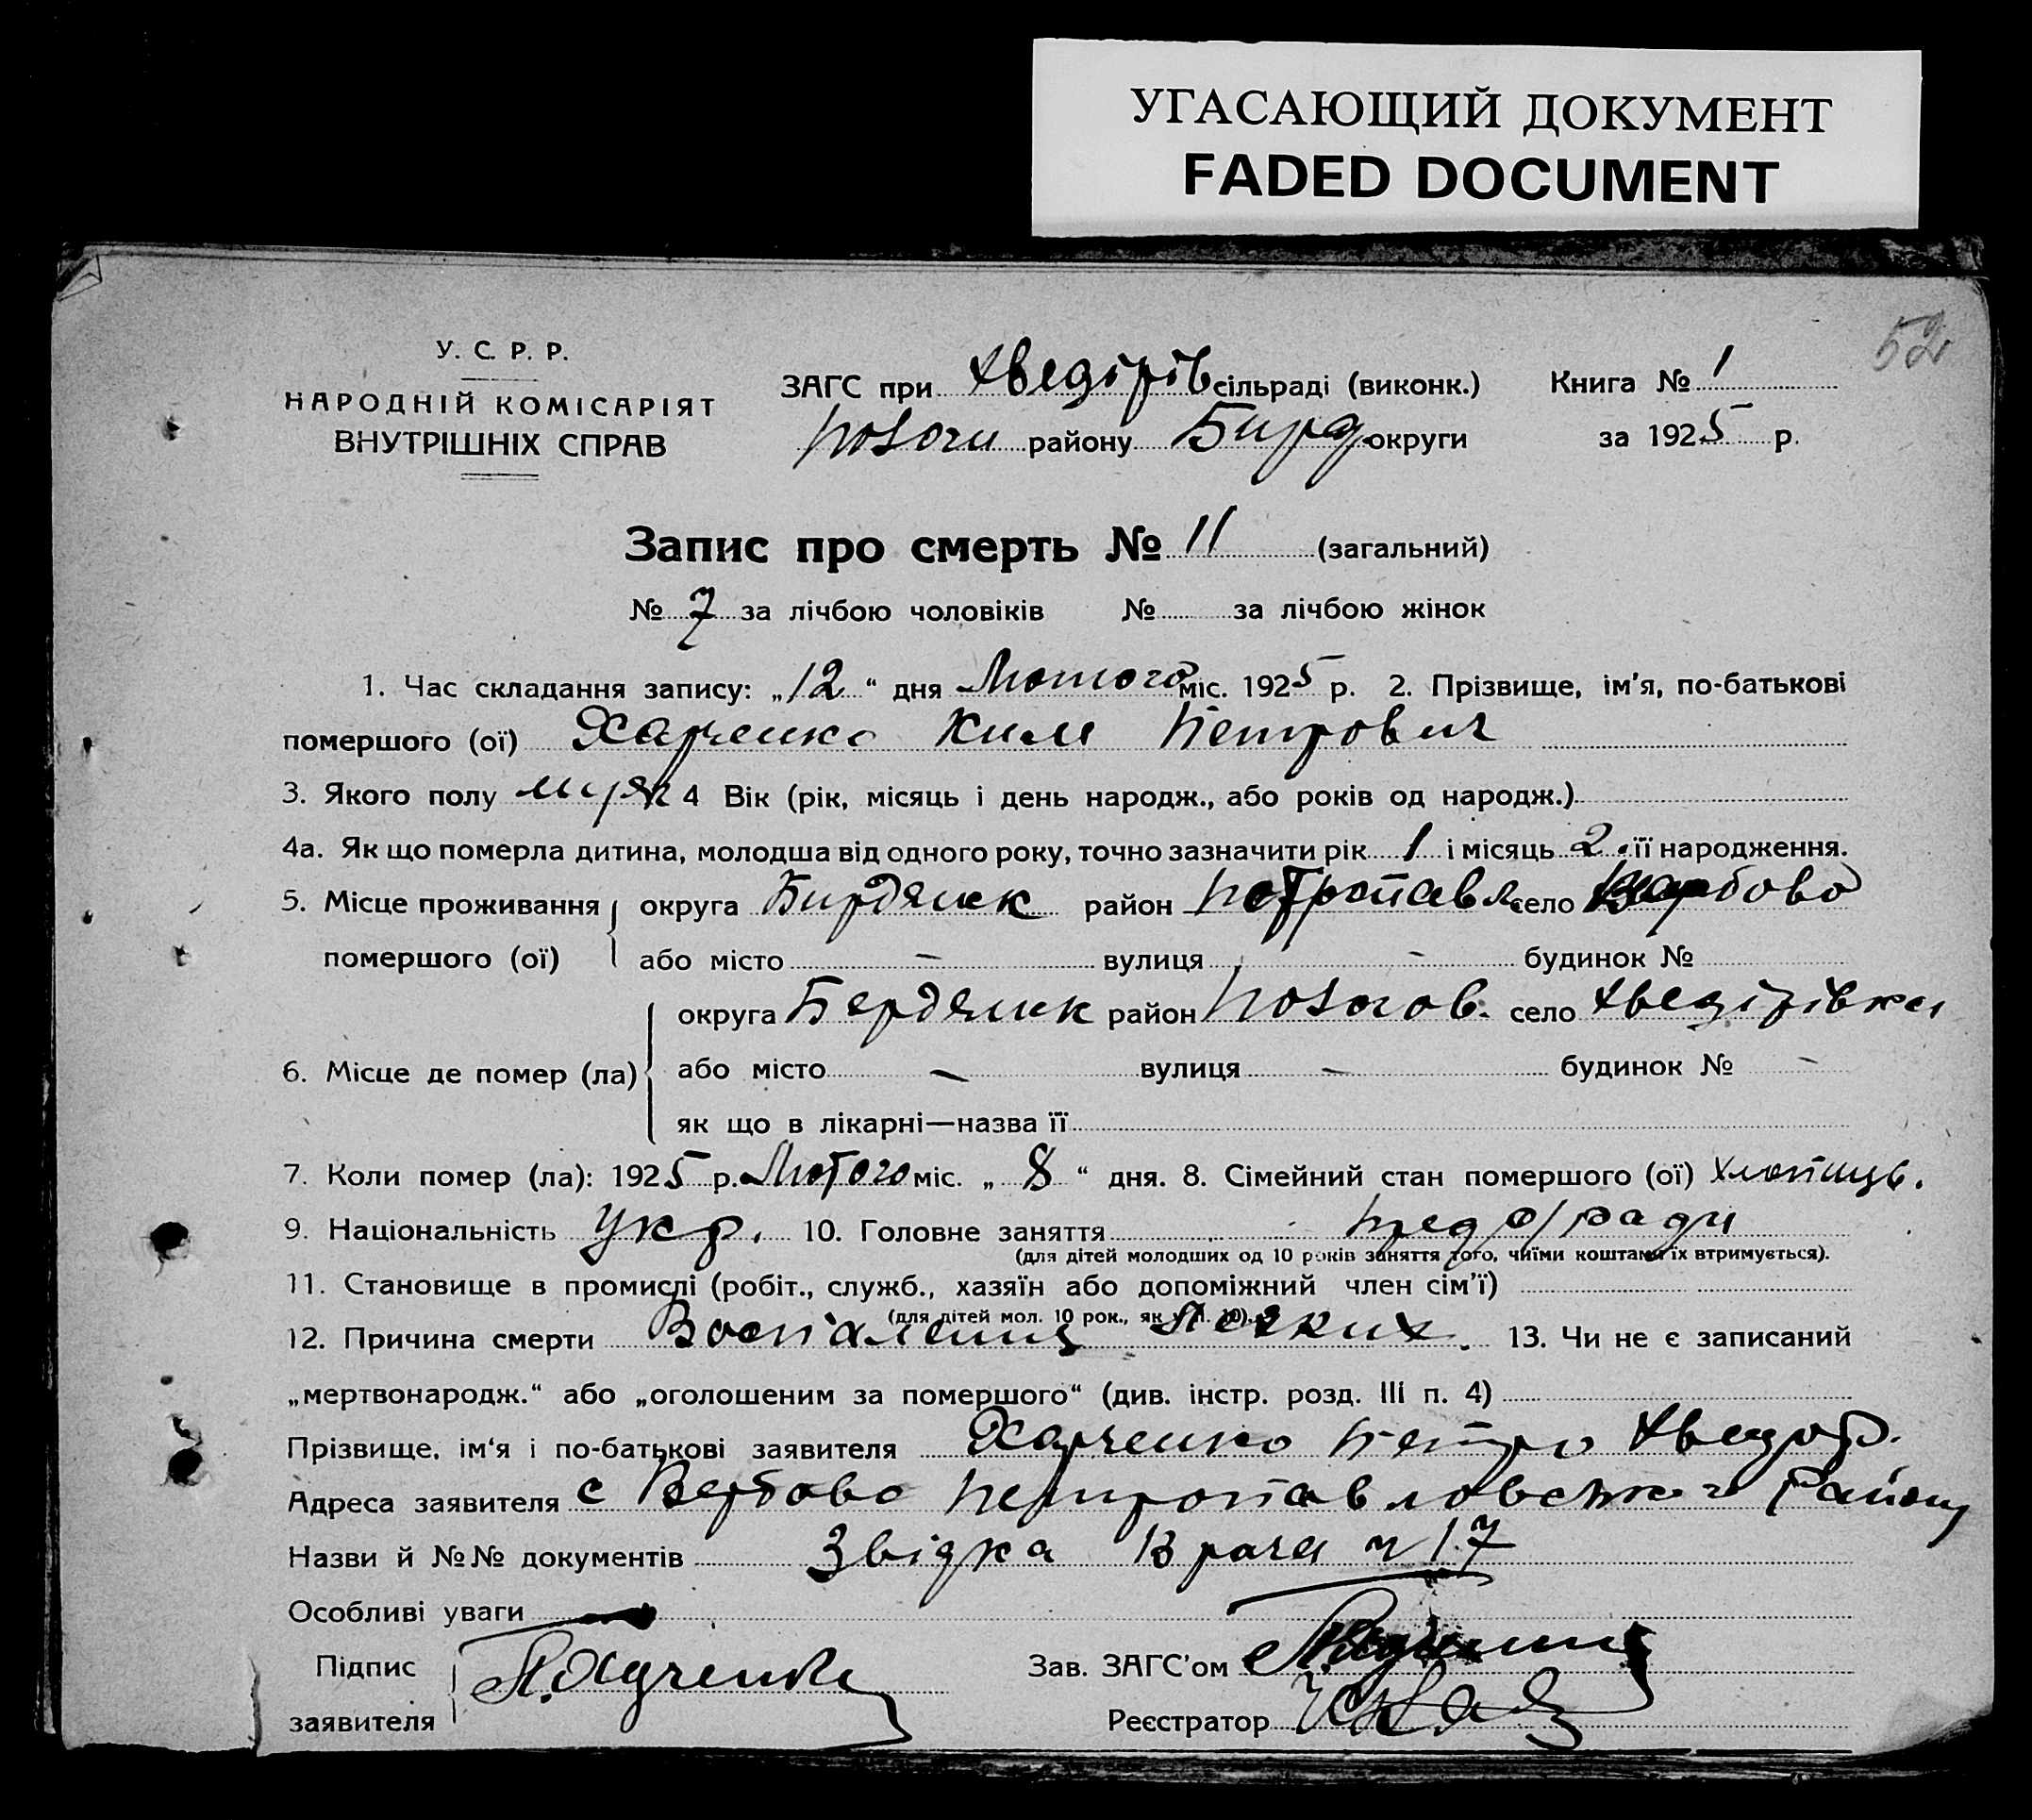 УГАСАЮЩИЙ ДОКУМЕНТ
FADED DOCUMENT
52
У. С. Р. Р.
НАРОДНІЙ КОМІСАРІЯТ
ВНУТРІШНІХ СПРАВ
ЗАГС при Хведірів сільраді (виконк.) Книга № 1
Пологи району Бирд. округи за 1925 р.
Запис про смерть № 11 (загальний)
№ 7 за лічбою чоловіків № за лічбою жінок
1. Час складання запису: „12“ дня Лютого міс. 1925 р. 2. Прізвище, ім'я, по-батькові
помершого (ої) Харченко Ким Петрович
3. Якого полу муж 4 Вік (рік, місяць і день народж., або років од народж.)
4а. Як що померла дитина, молодша від одного року, точно зазначити рік 1 і місяць 2. її народження.
5. Місце проживання округа Бирдянск район Петропавл. село Вербово
помершого (ої) або місто — вулиця — будинок №
округа Бердянск район Пологов. село Хведірівка
6. Місце де помер (ла) або місто — вулиця — будинок № —
як що в лікарні—назва її
7. Коли помер (ла): 1925 р. Лютого міс. „8“ дня. 8. Сімейний стан помершого (ої) хлопець.
9. Національність Укр. 10. Головне заняття
(для дітей молодших од 10 років заняття того, чиїми коштами їх втримується).
11. Становище в промислі (робіт., служб., хазяїн або допоміжний член сім'ї)
(для дітей мол. 10 рок., як у п. 10).
12. Причина смерти Воспаление легких. 13. Чи не є записаний
„мертвонародж.“ або „оголошеним за помершого“ (див. інстр. розд. III п. 4)
Прізвище, ім'я і по-батькові заявителя Харченко Петро Хведот.
Адреса заявителя с Вербово Петропавловського району
Назви й №№ документів Звідка Врача № 17
Особливі уваги
Підпис
заявителя П. Харченко
Зав. ЗАГС'ом
Реєстратор